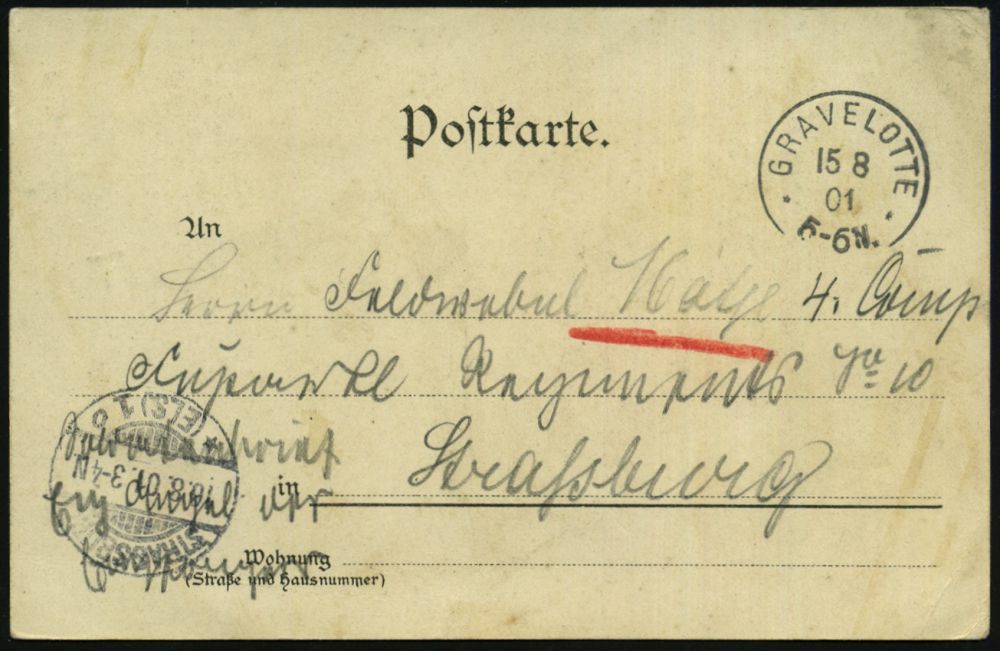 Postkarte.
GRAVELOTTE
15 8
01
5-6N.
An
Herrn Feldwebel 4. Comp
Fußartl Regiments No 10
Straßburg
in
Soldatenbrief
Eig Angel der
Empfängers
STRASSBURG (ELS) 1
16.8.01. 3-4N
Wohnung
(Straße und Hausnummer)